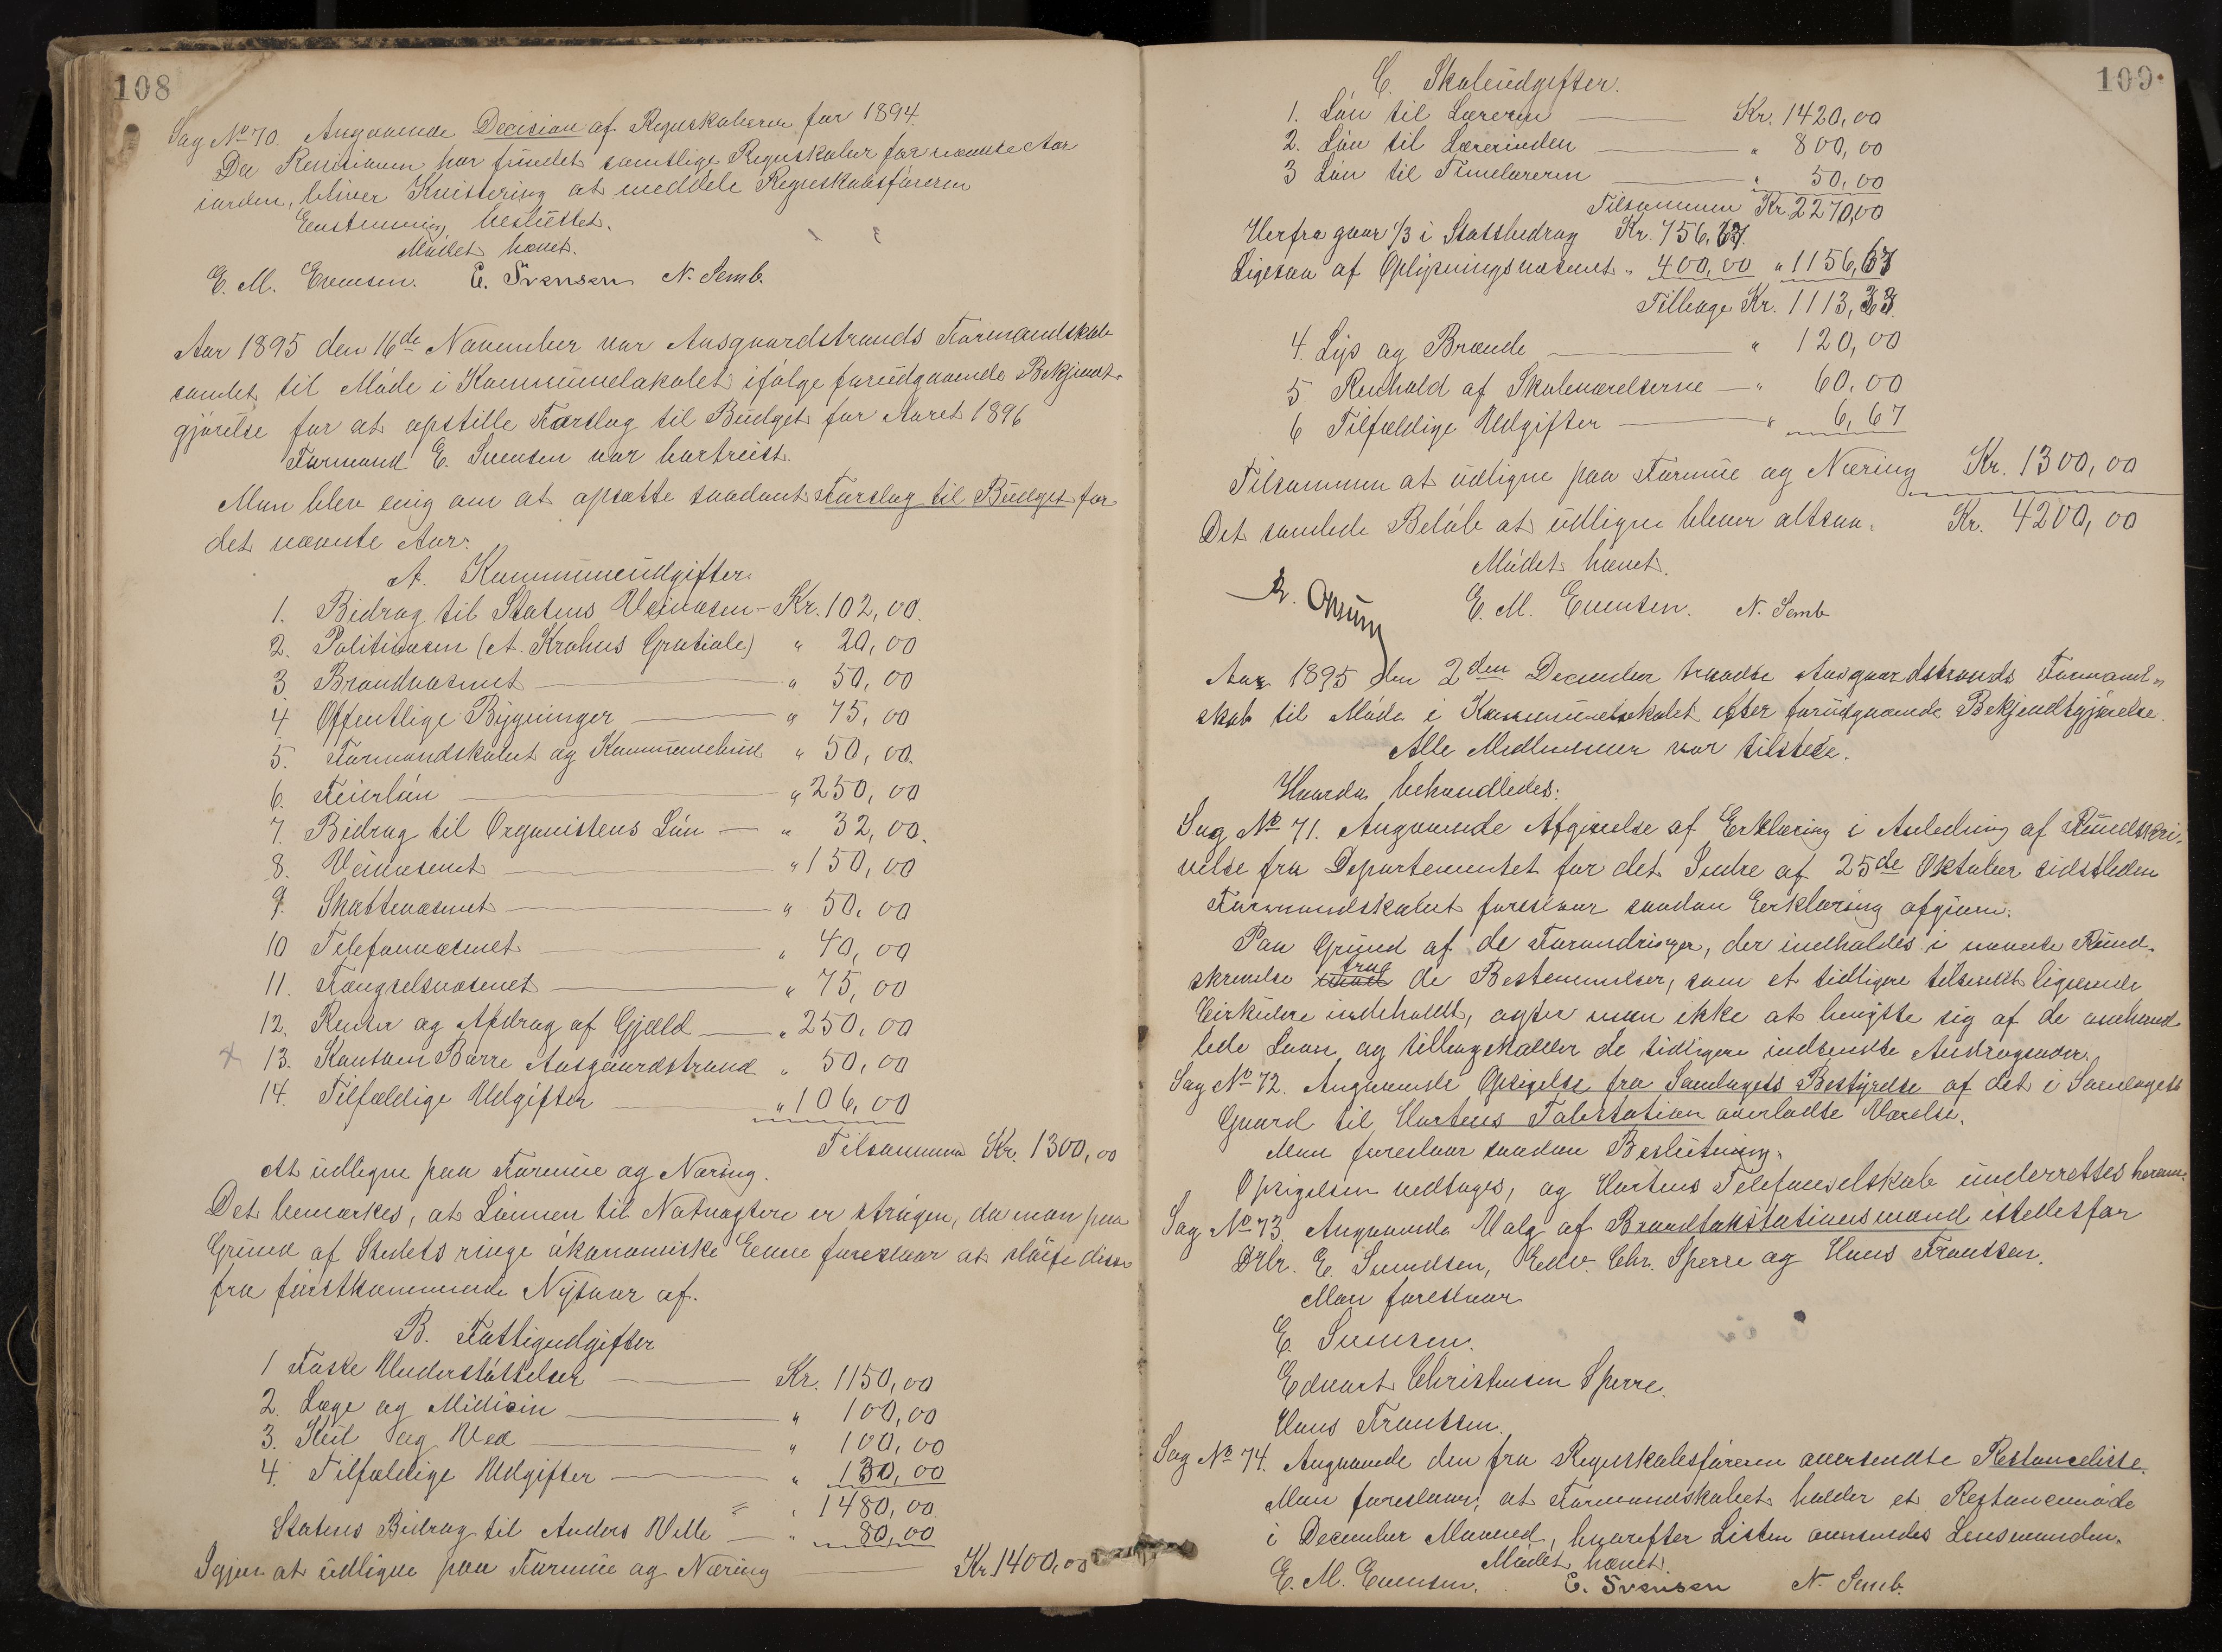 108
Sag No 70. Angaaende Decision af Regnskaberne for 1894.
Da Revisionen har fundet samtlige Regnskaber for nævnte Aar
iorden, bliver Kvittering at meddele Regnskabsføreren
Eenstemmig besluttet.
Mødet hævet.
E. M. Evensen. E. Svensen N. Semb.
Aar 1895 den 16de November var Aasgaardstrands Formandskab
samlet til Møde i Kommunelokalet ifølge forudgaaende Bekjendt-
gjørelse for at opstille Forslag til Budget for Aaret 1896
Formand E. Svensen var bortreist.
Man blev enig om at opsætte saadant Forslag til Budget for
det nævnte Aar:
A. Kommuneudgifter.
1. Bidrag til Statens Veivæsen - Kr. 102,00.
2. Politivæsen (A. Krohns Gratiale) " 20,00
3 Brandvæsenet " 50,00
4 Offentlige Bygninger " 75,00
5. Formandskabet og Kommunebud " 50,00.
6. Feierløn " 250,00
7. Bidrag til Organistens Løn " 32,00.
8. Veivæsenet " 150,00
9. Skattevæsenet " 50,00
10 Telefonvæsenet " 40,00
11. Fængselsvæsenet " 75,00
12. Renter og Afdrag af Gjæld " 250,00
x 13. Kontoen Borre Aasgaardstrand " 50,00
14. Tilfældige Udgifter " 106,00
Tilsammen Kr. 1300,00
At udligne paa Formue og Næring.
Det bemærkes, at Lønnen til Natvægtere er strøgen, da man paa
Grund af Stedets ringe økonomiske Evne foreslaar at sløife disse
fra førstkommende Nytaar af.
B. Fattigudgifter
1 Faste Understøttelser Kr. 1150,00
2. Læge og Medicin " 100,00
3. Kul og Ved " 100,00
4. Tilfældige Udgifter " 130,00
" 1480,00
Statens Bidrag til Anders Velle " 80,00
Igjen at udligne paa Formue og Næring Kr. 1400,00
109
C. Skoleudgifter.
1. Løn til Læreren Kr. 1420,00
2. Løn til Lærerinden " 800,00
3 Løn til Timelæreren " 50,00
Tilsammen Kr. 2270,00
Herfra gaar 1/3 i Statsbidrag Kr. 756,67.
Ligesaa af Oplysningsvæsenet " 400,00 " 1156,67
Tilbage Kr. 1113,33.
4. Lys og Brænde " 120,00
5. Renhold af Skoleværelserne " 60,00
6 Tilfældige Udgifter " 6,67
Tilsammen at udligne paa Formue og Næring Kr. 1300,00
Det samlede Beløb at udligne bliver altsaa. Kr. 4200,00
Mødet hævet.
E. M. Evensen. N. Semb
Aar 1895 den 2den December traadte Aasgaardstrands Formand-
skab til Møde i Kommunelokalet efter forudgaaende Bekjendtgjørelse.
Alle Medlemmer var tilstede.
Hvorda behandledes:
Sag No 71. Angaaende Afgivelse af Erklæring i Anledning af Rundskri-
velse fra Departementet for det Indre af 25de Oktober sidstleden
Formandskabet foreslaar saadan Erklæring afgiven:
Paa Grund af de Forandringer, der indholdes i nævnte Rund-
skrivelse fra de Bestemmelser, som et tidligere tilsendt lignende
Cirkulære indeholdt, agter man ikke at benytte sig af de omhand-
lede Laan og tilbagekalder de tidligere indsendte Andragender.
Sag No 72. Angaaende Opsigelse fra Samlagets Bestyrelse af det i Samlagets
Gaard til Hortens Talestation overladte Værelse.
Man foreslaar saadan Beslutning:
Opsigelsen vedtages, og Hortens Telefonselskab underrettes herom.
Sag No 73. Angaaende Valg af Brandtakstationsmænd istedetfor
DHr. E. Svendsen, Edv. Chr. Sperre og Hans Frantsen.
Man foreslaar
E. Svensen.
Edvart Christensen Sperre.
Hans Frantsen.
Sag No 74. Angaaende den fra Regnskabsføreren oversendte Restanceliste.
Man foreslaar, at Formandskabet holder et Restancemøde
i December Maaned, hvorefter Listen oversendes Lensmanden.
Mødet hævet.
E. M. Evensen. E. Svensen N. Semb.